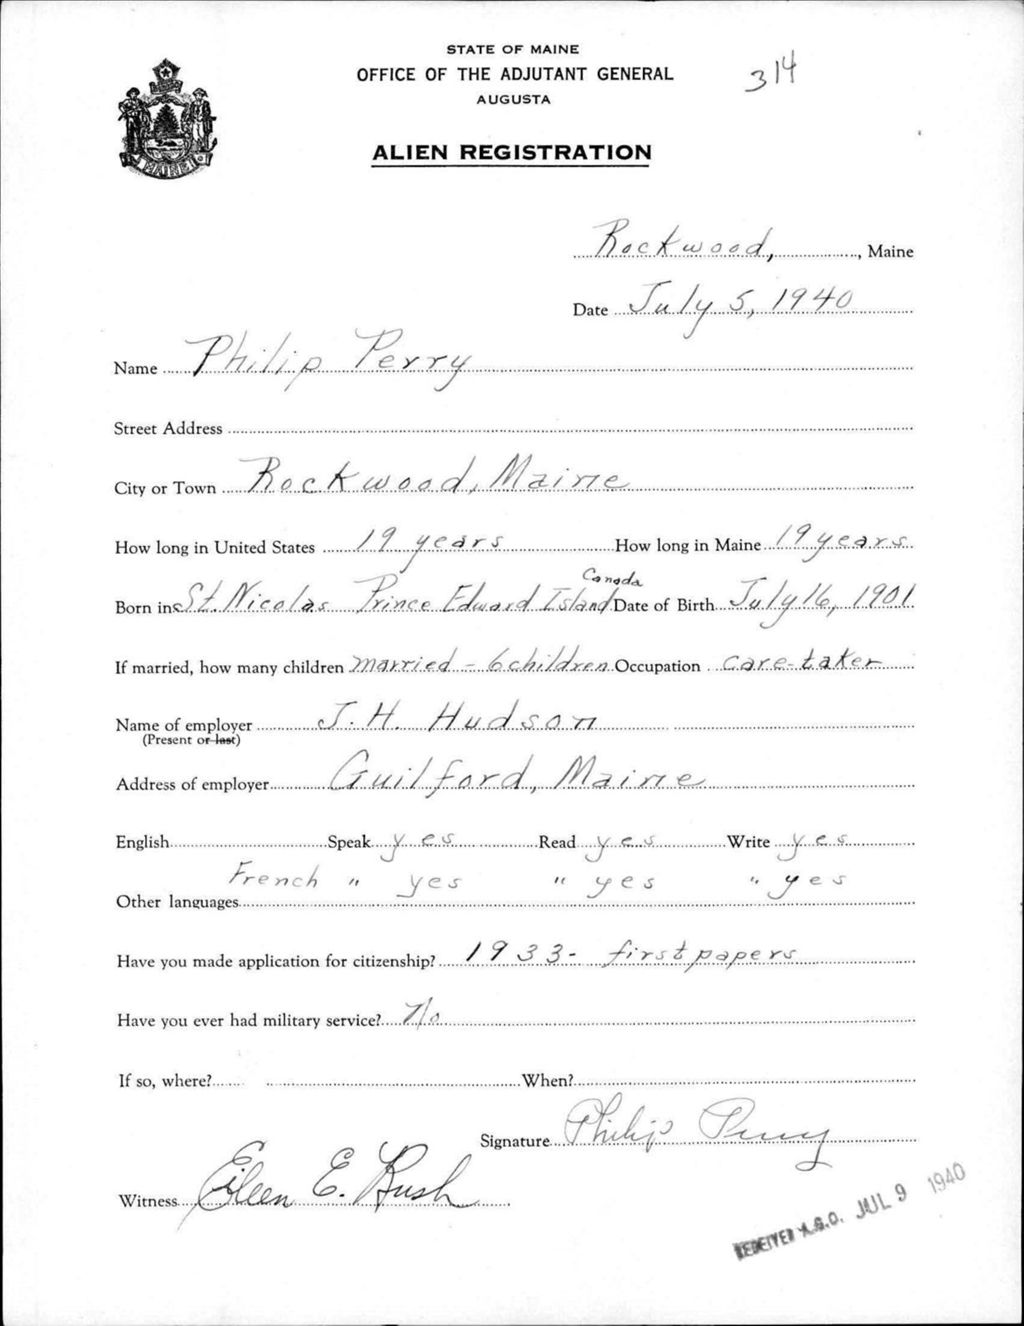 STATE OF MAINE
OFFICE OF THE ADJUTANT GENERAL
AUGUSTA
314
ALIEN REGISTRATION
MAINE
Rockwood, , Maine
Date July 5, 1940
Name Philip Perry
Street Address
City or Town Rockwood, Maine
How long in United States 19 years How long in Maine 19 years
Canada
Born in St. Nicolas Prince Edward Island Date of Birth July 16, 1901
If married, how many children married - 6 children Occupation care-taker
Name of employer J. H. Hudson
(Present or last)
Address of employer Guilford, Maine
English Speak yes Read yes Write yes
French " yes " yes " yes
Other languages
Have you made application for citizenship? 1933 - first papers
Have you ever had military service? No
If so, where? When?
Signature Philip Perry
Witness Eileen E. Rush
RECEIVED A.G.O. JUL 9 1940